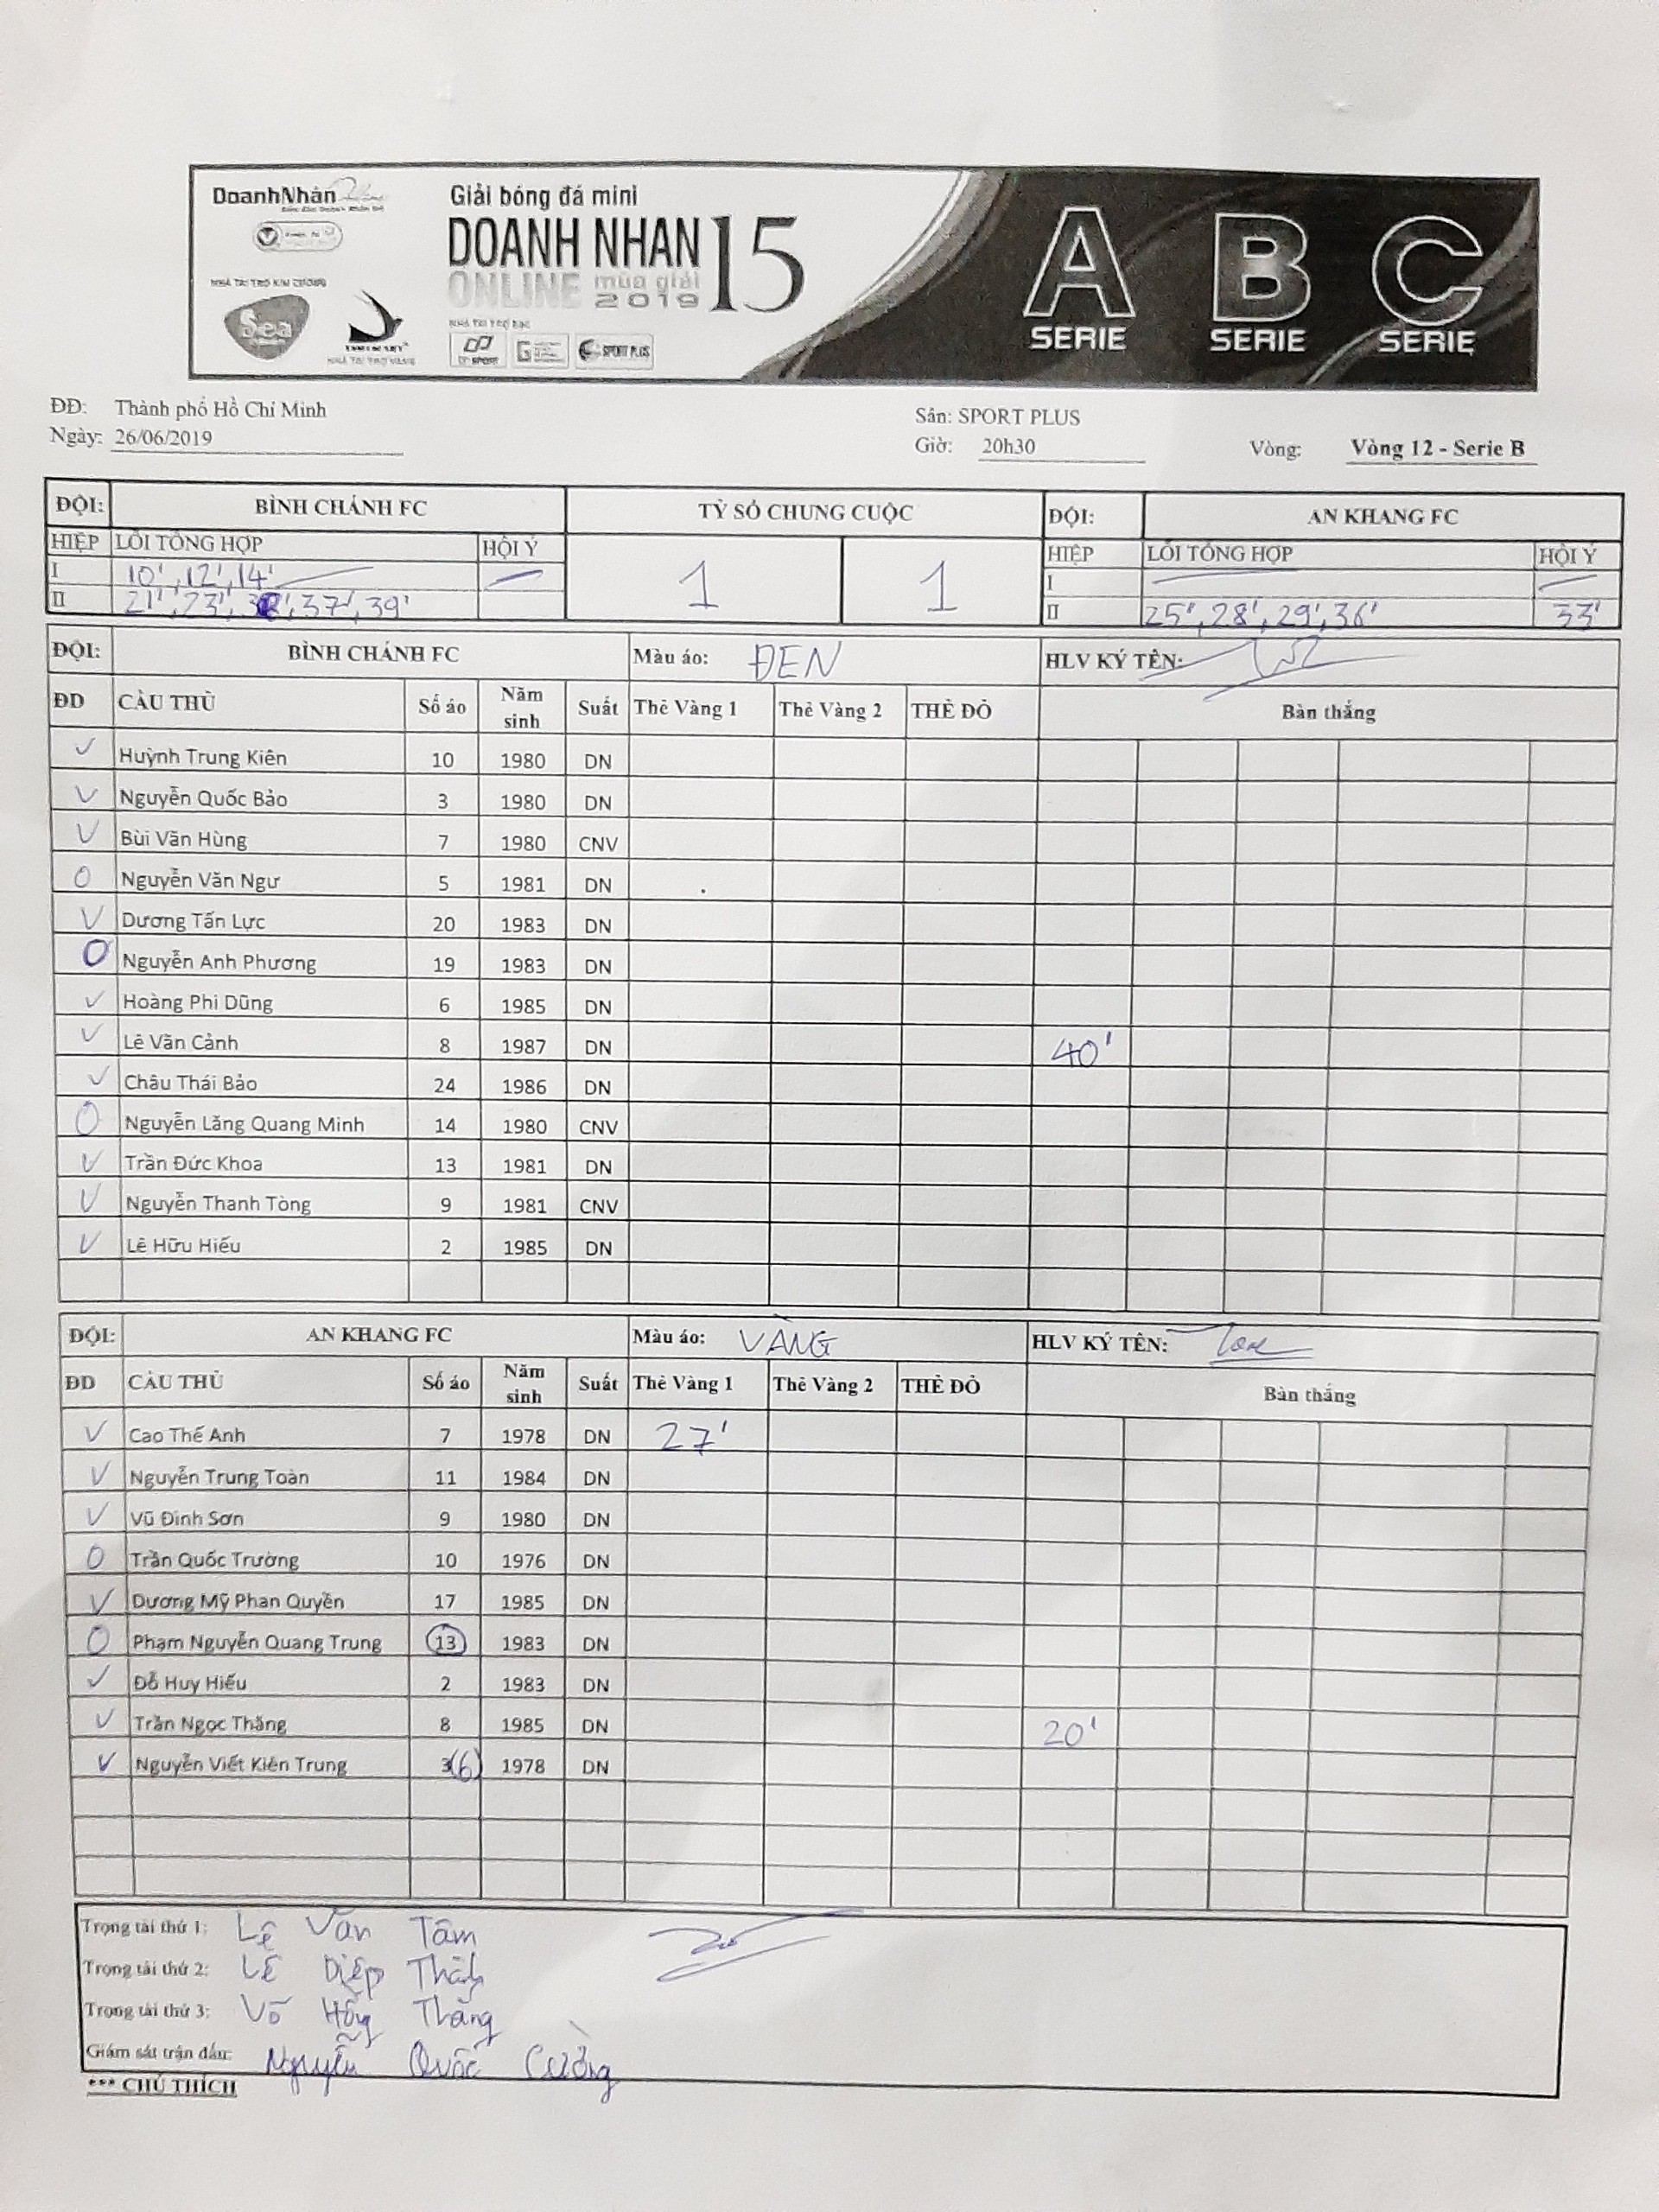 DoanhNhân
Giải bóng đá mini
DOANH NHAN 15
ONLINE mùa giải
2019
NHÀ TÀI TRỢ KIM CƯƠNG
Sea
NHÀ TÀI TRỢ VÀNG
NHÀ TÀI TRỢ BẠC
SPORT PLUS
A B C
SERIE SERIE SERIE
ĐĐ: Thành phố Hồ Chí Minh Sân: SPORT PLUS
Ngày: 26/06/2019 Giờ: 20h30 Vòng: Vòng 12 - Serie B
ĐỘI: BÌNH CHÁNH FC TỶ SỐ CHUNG CUỘC ĐỘI: AN KHANG FC
HIỆP LỖI TỔNG HỢP HỘI Ý 1 1 HIỆP LỖI TỔNG HỢP HỘI Ý
I 10', 12', 14' I
II 21', 23', 37', 39' II 25', 28', 29', 36' 33'
ĐỘI: BÌNH CHÁNH FC Màu áo: ĐEN HLV KÝ TÊN:
ĐD CẦU THỦ Số áo Năm sinh Suất Thẻ Vàng 1 Thẻ Vàng 2 THẺ ĐỎ Bàn thắng
V Huỳnh Trung Kiên 10 1980 DN
V Nguyễn Quốc Bảo 3 1980 DN
V Bùi Văn Hùng 7 1980 CNV
O Nguyễn Văn Ngư 5 1981 DN
V Dương Tấn Lực 20 1983 DN
O Nguyễn Anh Phương 19 1983 DN
V Hoàng Phi Dũng 6 1985 DN
V Lê Văn Cảnh 8 1987 DN 40'
V Châu Thái Bảo 24 1986 DN
O Nguyễn Lăng Quang Minh 14 1980 CNV
V Trần Đức Khoa 13 1981 DN
V Nguyễn Thanh Tòng 9 1981 CNV
V Lê Hữu Hiếu 2 1985 DN
ĐỘI: AN KHANG FC Màu áo: VÀNG HLV KÝ TÊN:
ĐD CẦU THỦ Số áo Năm sinh Suất Thẻ Vàng 1 Thẻ Vàng 2 THẺ ĐỎ Bàn thắng
V Cao Thế Anh 7 1978 DN 27'
V Nguyễn Trung Toàn 11 1984 DN
V Vũ Đình Sơn 9 1980 DN
O Trần Quốc Trường 10 1976 DN
V Dương Mỹ Phan Quyền 17 1985 DN
O Phạm Nguyễn Quang Trung 13 1983 DN
V Đỗ Huy Hiếu 2 1983 DN
V Trần Ngọc Thắng 8 1985 DN 20'
V Nguyễn Viết Kiên Trung 3(6) 1978 DN
Trọng tài thứ 1: Lê Văn Tâm
Trọng tài thứ 2: Lê Diệp Thành
Trọng tài thứ 3: Võ Hồng Thắng
Giám sát trận đấu: Nguyễn Quốc Cường
*** CHÚ THÍCH